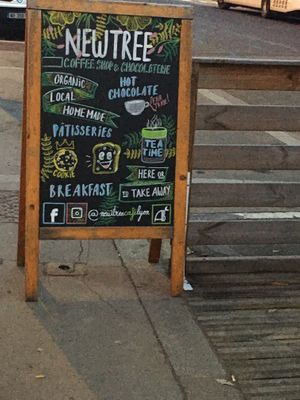 NEWTREE
COFFEE SHOP & CHOCOLATERIE
ORGANIC
LOCAL
HOME MADE
PÂTISSERIES
HOT
CHOCOLATE
COOKIE
TEA
TIME
BREAKFAST
HERE OR
TO TAKE AWAY
f
@newtreecafelyon